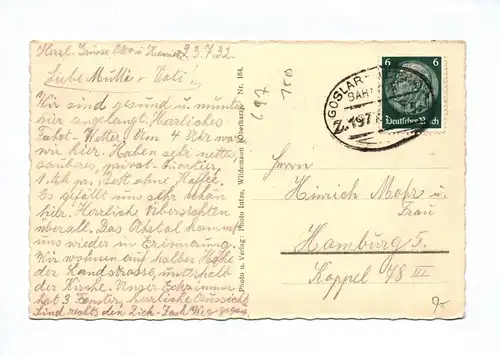 Herzl. Grüsse Otto u. 23.7.32
Liebe Mutti u. Vati!
Wir sind gesund u. munter
hier angelangt. Herrliches
Fahrt-Wetter! Um 4 Uhr waren
wir hier. Haben sehr nettes
sauberes, privat-Quartier
1. pr. Bett ohne Kaffee.
Es gefällt uns sehr schön
hier. Herrliche
überall. Das kommt
uns wieder in Erinnerung.
Wir wohnen auf halber Höhe
der Landstrasse, unterhalb
der Kirche. Unser Eckzimmer
hat 3 Fenster, herrliche Aussicht.
Sind rechts den Weg gegang.
Photo u. Verlag: Photo Intze, Wildemann (Oberharz). Nr. 184.
697
750
GOSLAR-
BAH
Z.197
6 6
Deutsches Reich
Herrn
Hinrich Mohr u.
Frau
Hamburg 5.
Koppel 78 III